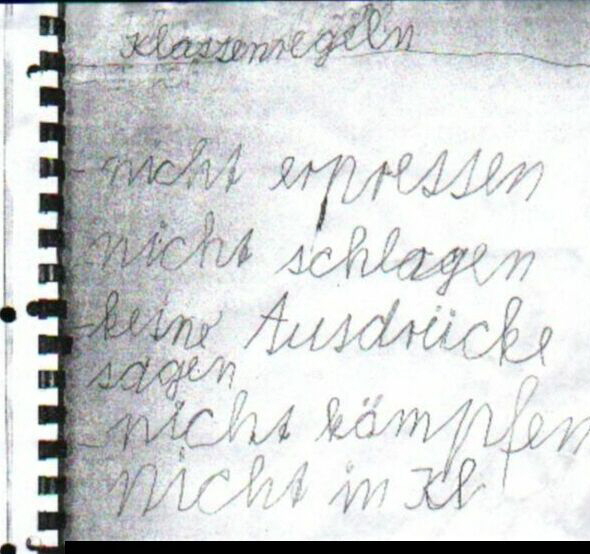 Klassenregeln
- nicht erpressen
- nicht schlagen
- keine Ausdrücke
sagen
- nicht kämpfen
nicht in Kl